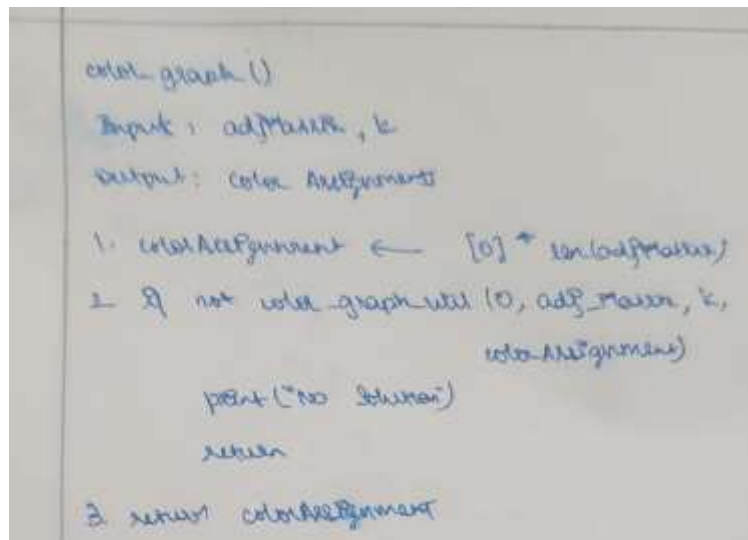 color_graph ()
Input : adjMatrix, k
Output: color Assignments
1. colorAssignment ← [0] * len(adjMatrix)
2 If not color_graph_util (0, adj_Matrix, k,
colorAssignment)
print ("No Solution")
return
3. return colorAssignment